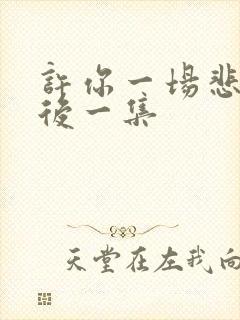 許你一場悲
後一集
天堂在左我向